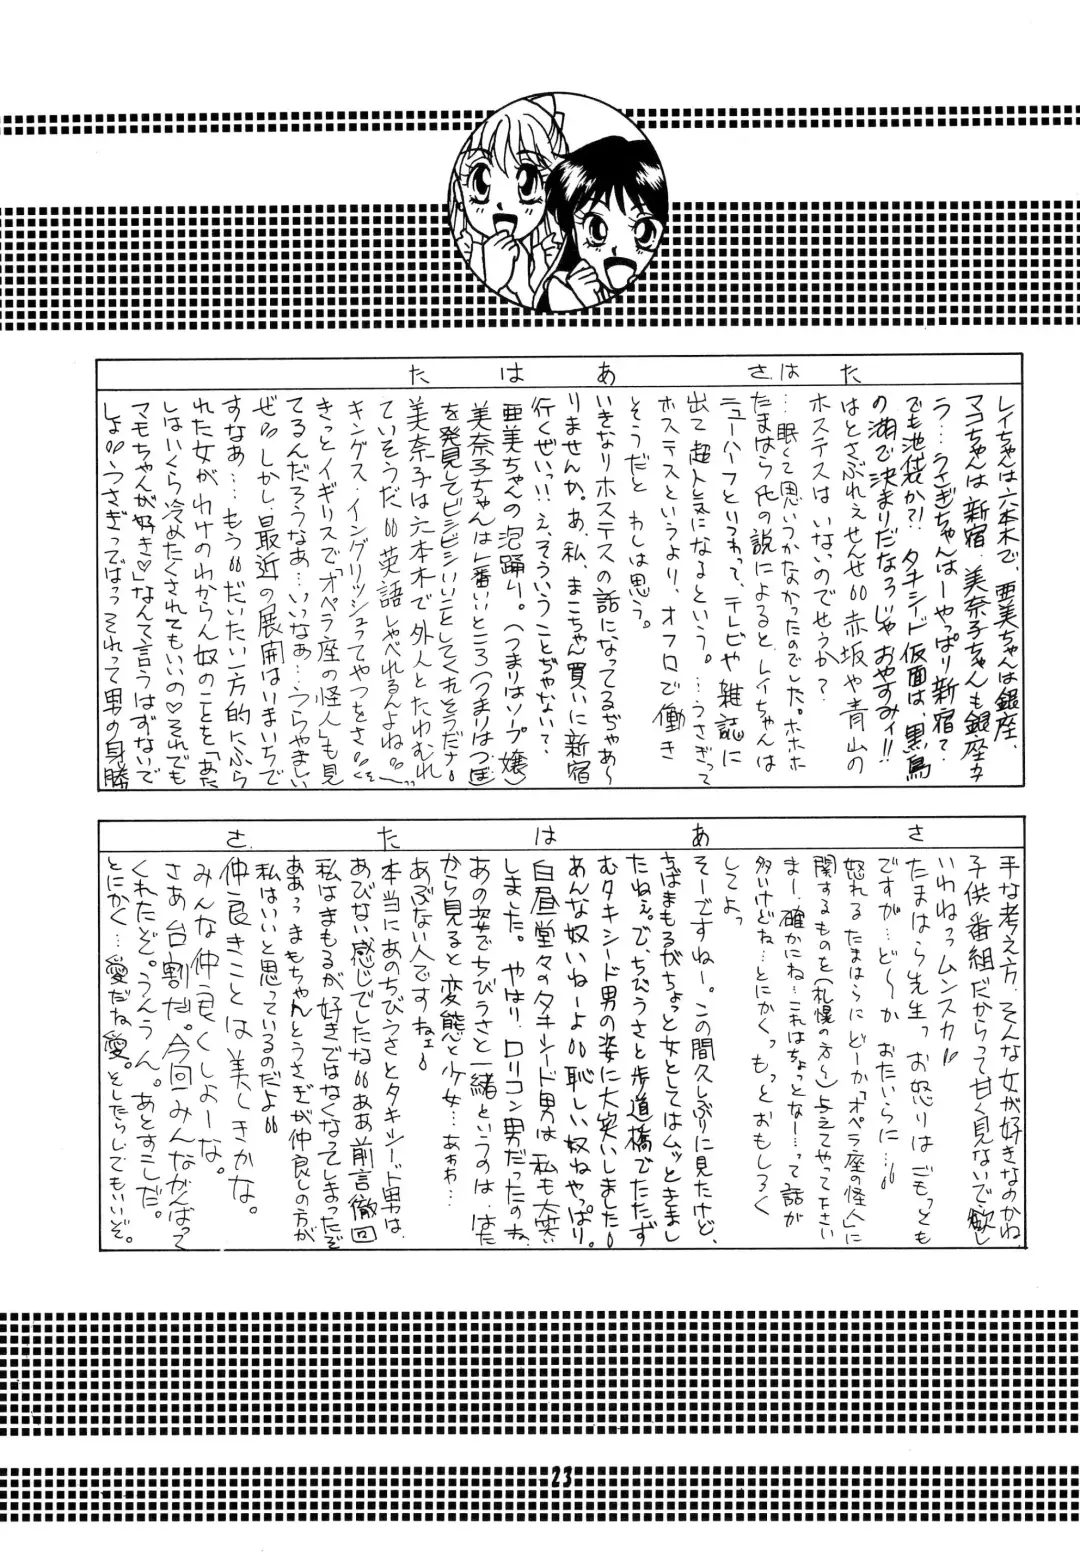 た
は
さ
あ
は
た
レイちゃんは六本木で、亜美ちゃんは銀座、
マコちゃんは新宿、美奈子ちゃんも銀座カ
ラ…うさぎちゃんはーやっぱり新宿?
でも池袋か?! タキシード仮面は、黒鳥
の湖で決まりだなっじゃおやすみィ!!
はとさぶれぇせんせ 赤坂や青山の
ホステスは いないのでせうか?
…眠くて思いつかなかったのでした。ホホホ
たまはら氏の説によると、レイちゃんは
ニューハーフといつわって、テレビや雑誌に
出て 超人気になるという。…うさぎって
ホステスというより、オフロで働き
そうだと わしは思う。
いきなりホステスの話になってるぢゃあ〜
りませんか。あ、私、まこちゃん買いに新宿
行くぜいっ!!え、そういうことぢゃない?
亜美ちゃんの泡踊り。(つまりはソープ嬢)
美奈子ちゃんは一番いいところ(つまりはつぼ)
を発見してビシビシいいことしてくれそうだナ
美奈子は六本木で外人とたわむれ
ていそうだ 英語しゃべれるんよね。
キングス・イングリッシュってやつをさ
きっとイギリスで「オペラ座の怪人」も見
てるんだろうなあ…いいなあ…うらやましい
ぜ しかし、最近の展開はいまいちで
すなあ…もう だいたい一方的にふら
れた女がわけのわからん奴のことを「あた
しはいくら冷めたくされてもいいの♡それでも
マモちゃんが好き♡」なんて言うはずないで
しょ うさぎってばっ それって男の身勝
さ
あ
は
た
さ
手な考え方、そんな女が好きなのかね
子供番組だからって甘く見ないで欲し
いわねっっムンスカ
たまはら先生っ お怒りはごもっとも
ですが…ど〜か おたいらに…
怒れるたまはらにどーか「オペラ座の怪人」に
関するものを(札幌の方〜)与えてやって下さい
まー、確かにね…これはちょっとなー…って話が
多いけどね…とにかくっ もっとおもしろく
してよっ
そーですねー。この間久しぶりに見たけど、
ちばまもるがちょっと女としてはムッときまし
たねぇ。で、ちびうさと歩道橋でたたず
むタキシード男の姿に大笑いしました
あんな奴いねーよ 恥しい奴ねやっぱり。
白昼堂々のタキシード男は、私も大笑い
しました。やはり、ロリコン男だったのね、
あの姿でちびうさと一緒というのは、はた
から見ると変態と少女…あぁあ…
あぶない人ですねェ
本当にあのちびうさとタキシード男は、
あびない感じでしたな ああ前言徹回
私はまもるが好きではなくなってしまったぞ
ああっまもちゃんとうさぎが仲良しの方が
私はいいと思っているのだよ
仲良きことは美しきかな。
みんな仲良くしよーな。
さあ台割だ。今回みんながんばって
くれたぞ。うんうん。あとすこしだ。
とにかく…愛だね愛。そしたらしでもいいぞ。
23